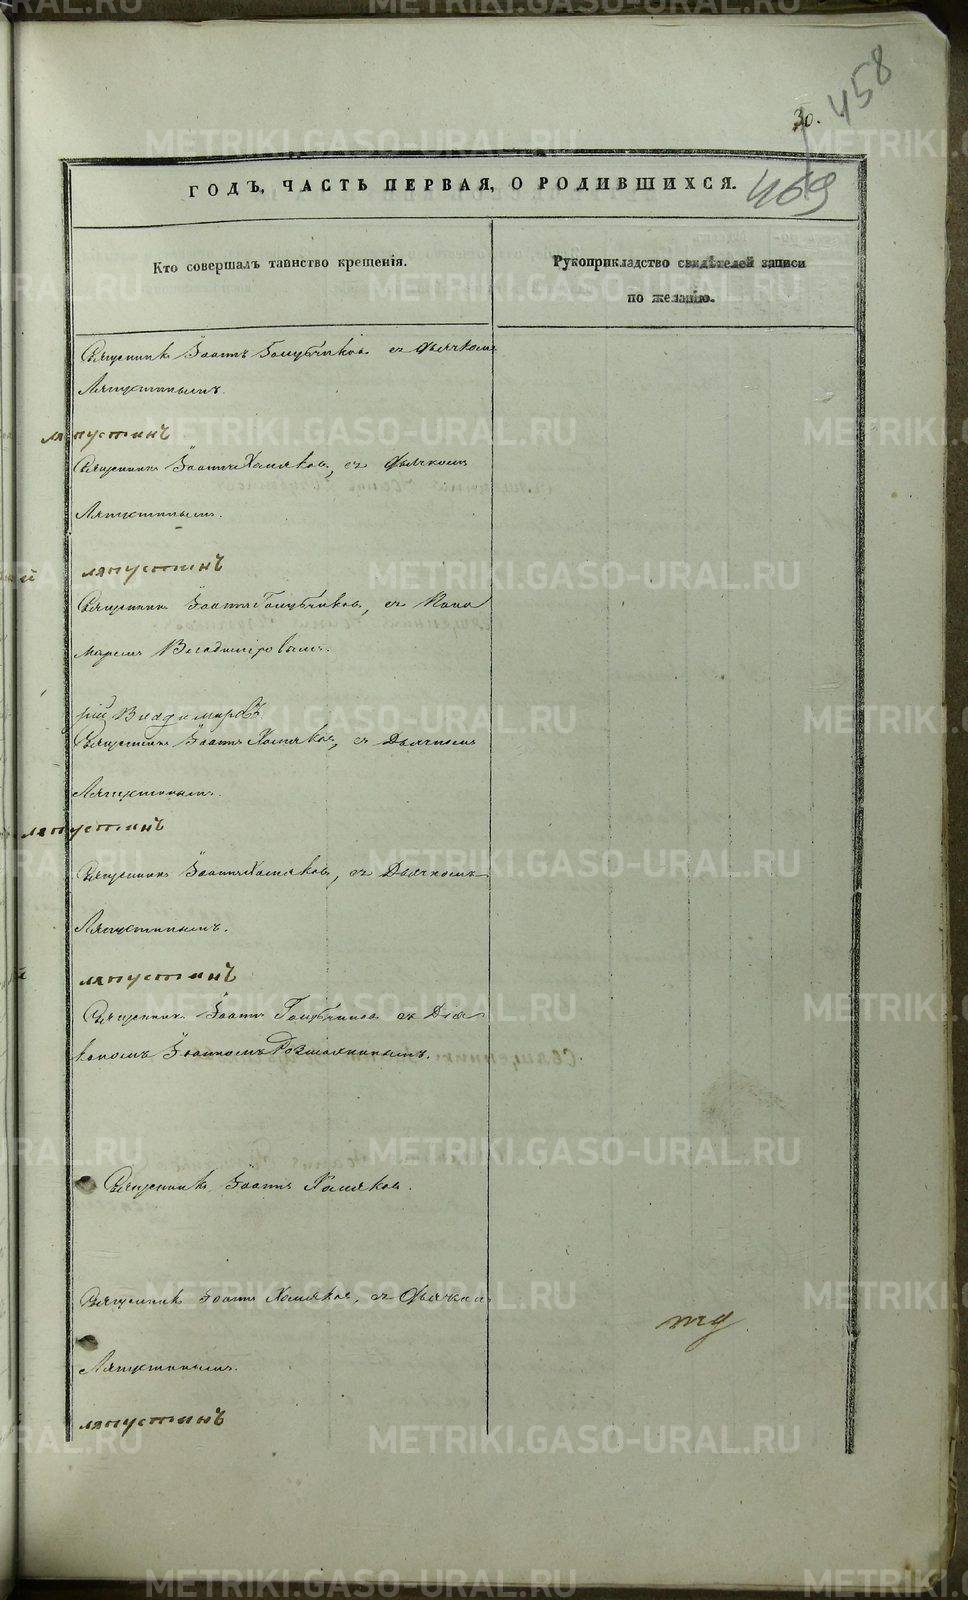 458
30.
469
ГОДЪ, ЧАСТЬ ПЕРВАЯ, О РОДИВШИХСЯ.
Кто совершалъ таинство крещенія.
Рукоприкладство свидѣтелей записи
по желанію.
Священникъ Іоаннъ Голубчиковъ съ Дьячкомъ
Ляпустинымъ.
ляпустинъ
Священникъ Іоаннъ Хомяковъ, съ Дьячкомъ
Ляпустинымъ.
ляпустинъ
Священникъ Іоаннъ Голубчиковъ, съ Поно
маремъ Владиміровымъ.
рій Владимировъ
Священникъ Іоаннъ Хомяковъ, съ Дьячкомъ
Ляпустинымъ.
ляпустинъ
Священникъ Іоаннъ Хомяковъ, съ Дьячкомъ
Ляпустинымъ.
ляпустинъ
Священникъ Іоаннъ Голубчиковъ съ Діа-
кономъ Іоанномъ
Священникъ Іоаннъ Хомяковъ.
Священникъ Іоаннъ Хомяковъ, съ Дьячко
Ляпустинымъ.
ляпустинъ
METRIKI.GASO-URAL.RU